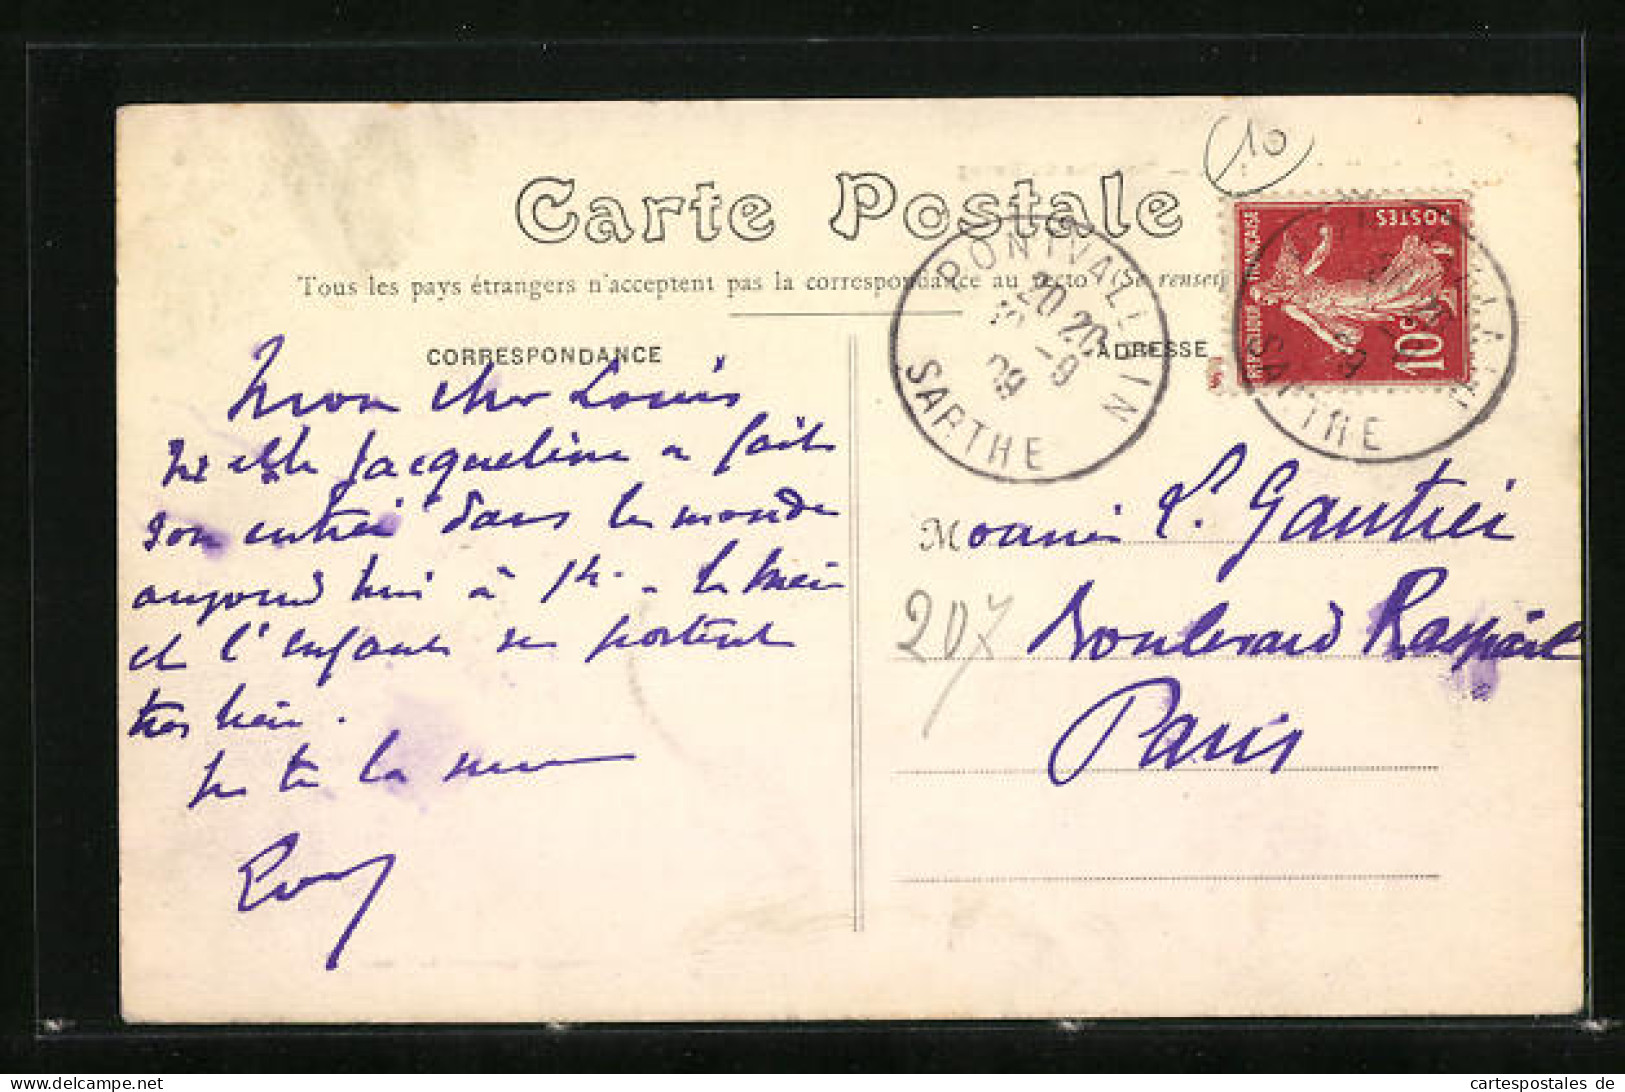 10
Carte Postale
Tous les pays étrangers n'acceptent pas la correspondance au recto (Se rensei
CORRESPONDANCE
ADRESSE
PONTVALLAIN
20 20
-9
09
SARTHE
POSTES
REPUBLIQUE FRANÇAISE
10c
SARTHE
Mon cher Louis
Melle Jacqueline a fait
son entrée dans le monde
aujourd'hui à 1h. - La mère
et l'enfant se portent
très bien.
Je te la serre
M
L. Gautier
207
Boulevard Raspail
Paris
cartespostales de